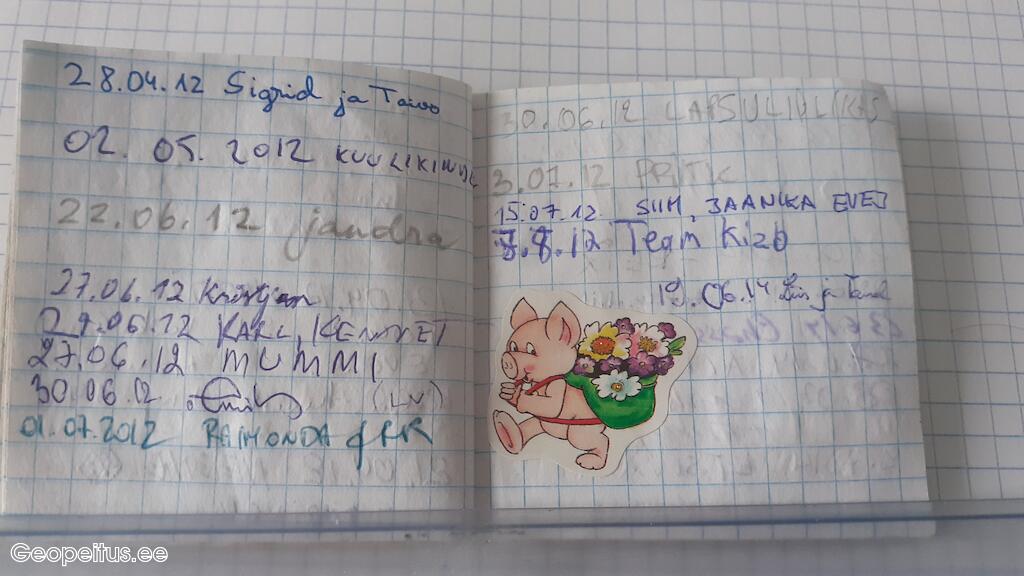 28.04.12 Sigrid ja Taivo
02. 05. 2012 KUULIKINDEL
22.06.12 jaudra
27.06.12 Kristjan
29.06.12 KARL, KENNET
27.06.12 MUMMI
30.06.12 (LV)
01.07.2012 RAIMONDA
30.06.12 LAPSULIULIKAS
3.07.12 PRITIK
15.07.12 SIIM, JAANIKA EVELI
8.8.12 Team Kizo
19.06.14 ja
Geopeitus.ee